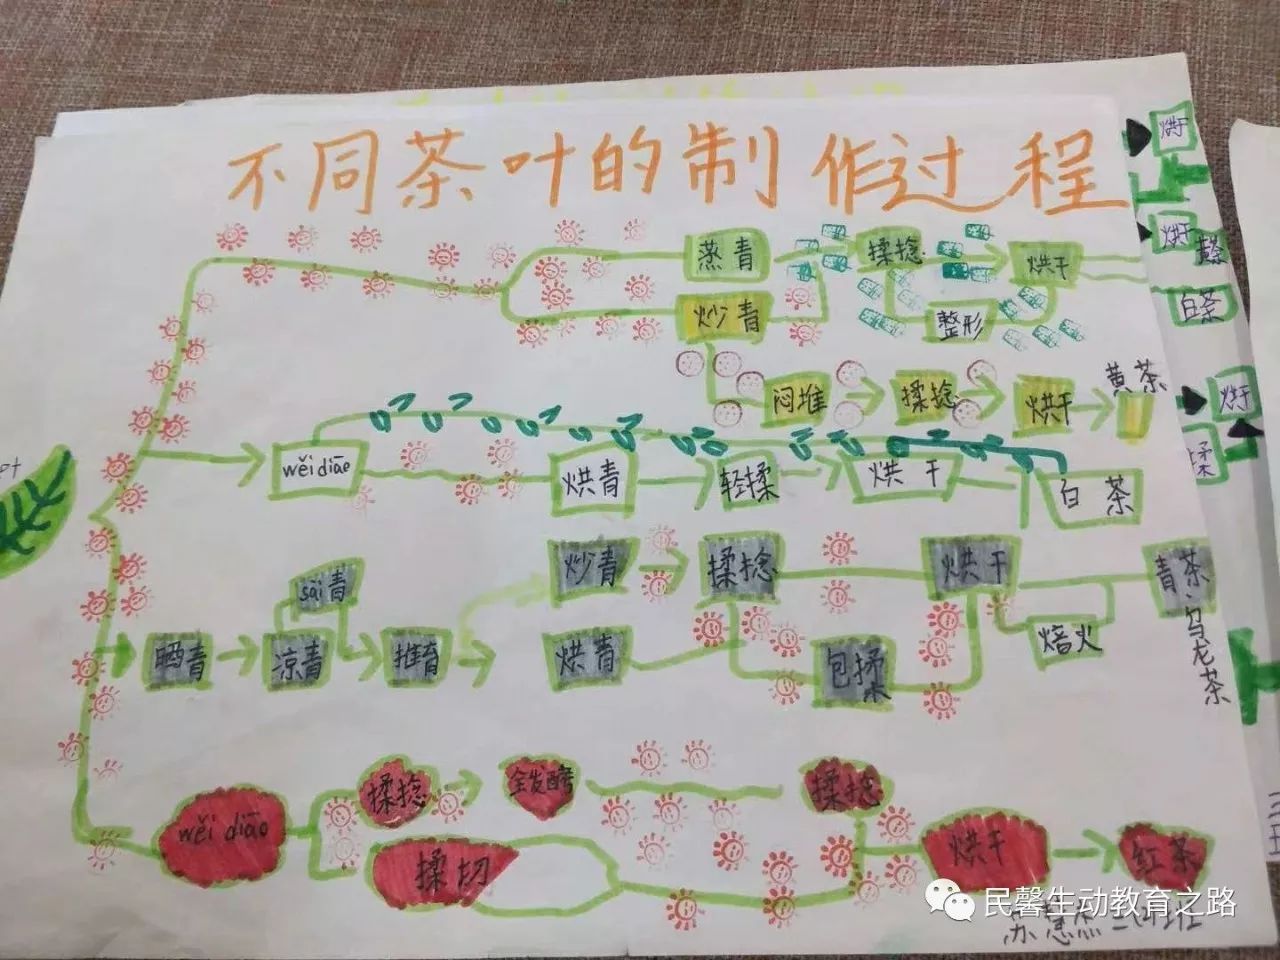 不同茶叶的制作过程
叶
蒸青
揉捻
烘干
炒青
整形
闷堆
揉捻
烘干
黄茶
wěi diāo
烘青
轻揉
烘干
白茶
晒青
sāi青
凉青
炒青
烘青
揉捻
包揉
烘干
焙火
青茶、乌龙茶
wěi diāo
揉捻
全发酵
揉捻
揉切
烘干
红茶
烘干
烘干
白茶
烘干
揉
民馨生动教育之路